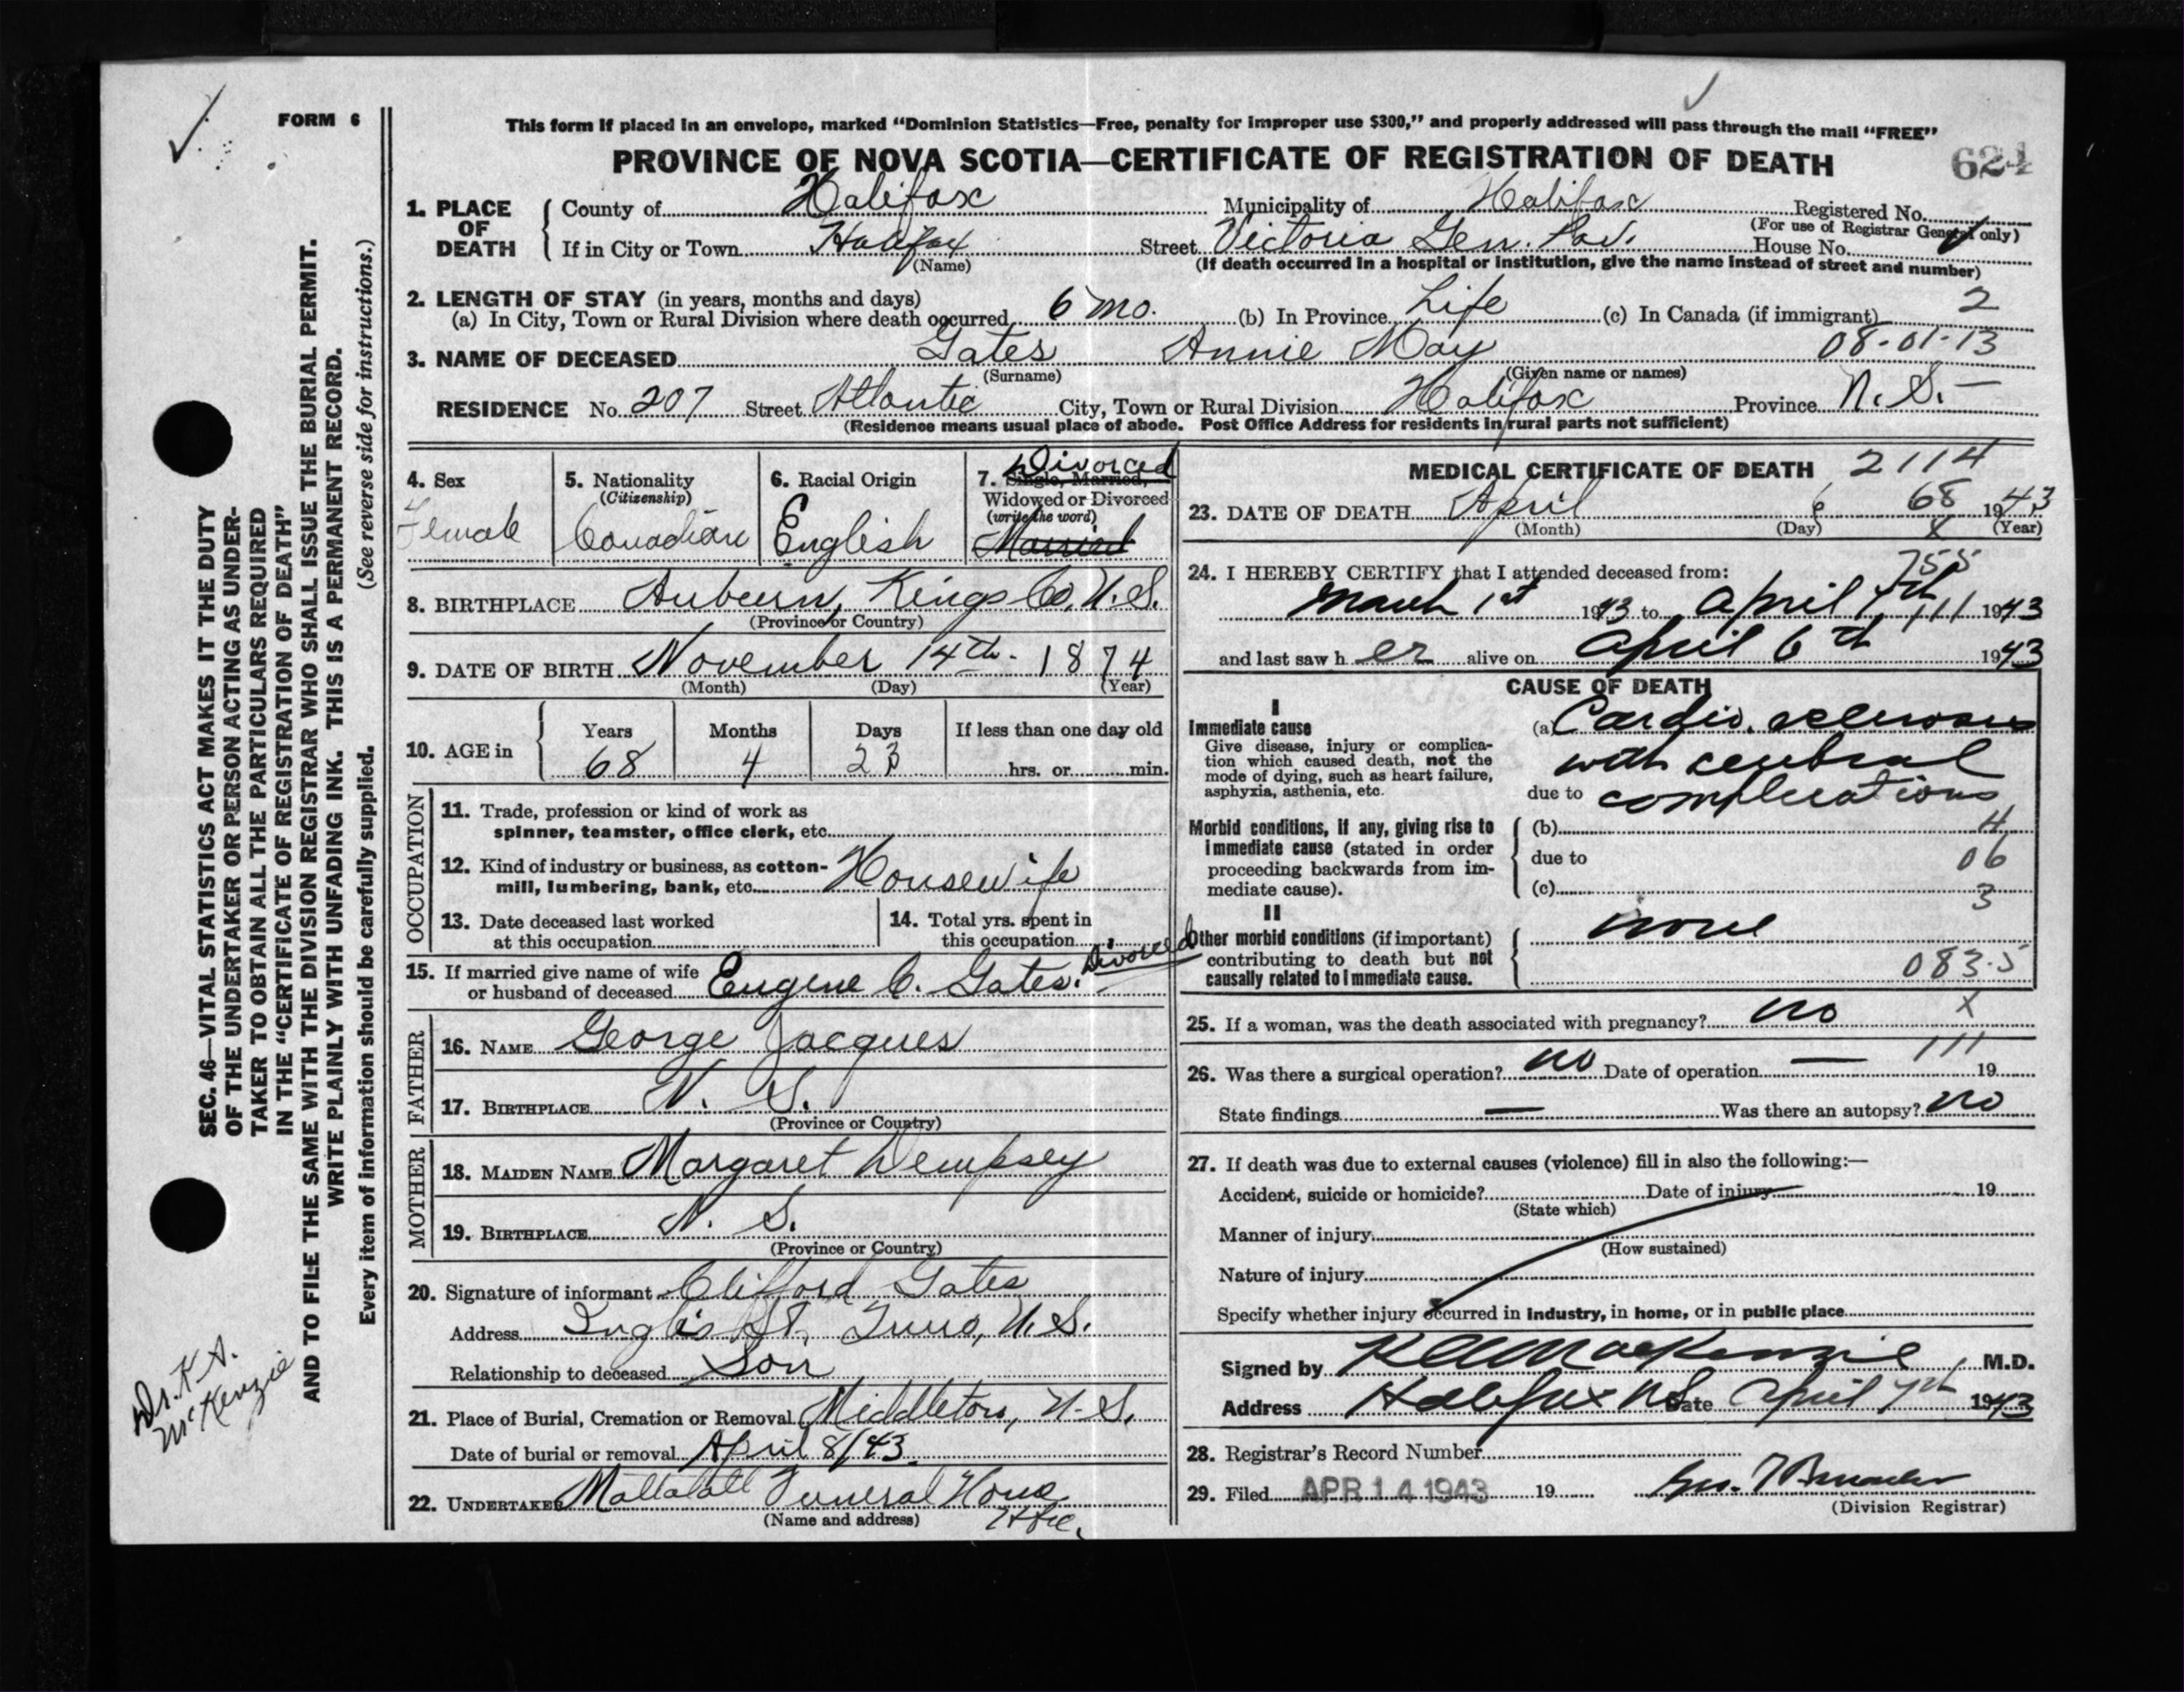 FORM 6
This form if placed in an envelope, marked "Dominion Statistics—Free, penalty for improper use $300," and properly addressed will pass through the mail "FREE"
PROVINCE OF NOVA SCOTIA—CERTIFICATE OF REGISTRATION OF DEATH
624
1. PLACE OF DEATH
County of Halifax Municipality of Halifax Registered No.
(For use of Registrar General only)
If in City or Town Halifax Street Victoria Gen. Pav. House No.
(Name) (If death occurred in a hospital or institution, give the name instead of street and number)
2. LENGTH OF STAY (in years, months and days)
(a) In City, Town or Rural Division where death occurred 6 mo. (b) In Province Life (c) In Canada (if immigrant) 2
3. NAME OF DECEASED Gates Annie May 08-01-13
(Surname) (Given name or names)
RESIDENCE No. 207 Street Atlantic City, Town or Rural Division Halifax Province N.S.—
(Residence means usual place of abode. Post Office Address for residents in rural parts not sufficient)
4. Sex
Female
5. Nationality
(Citizenship)
Canadian
6. Racial Origin
English
Divorced
7. Single, Married,
Widowed or Divorced
(write the word)
Married
8. BIRTHPLACE Auburn, Kings Co, N.S.
(Province or Country)
9. DATE OF BIRTH November 14th - 1874
(Month) (Day) (Year)
10. AGE in
Years Months Days If less than one day old
68 4 23 hrs. or min.
OCCUPATION
11. Trade, profession or kind of work as
spinner, teamster, office clerk, etc.
12. Kind of industry or business, as cotton-
mill, lumbering, bank, etc. Housewife
13. Date deceased last worked
at this occupation
14. Total yrs. spent in
this occupation
15. If married give name of wife
or husband of deceased Eugene C. Gates. Divorced
FATHER
16. NAME George Jacques
17. BIRTHPLACE N. S.
(Province or Country)
MOTHER
18. MAIDEN NAME Margaret Dempsey
19. BIRTHPLACE N. S.
(Province or Country)
20. Signature of informant Clifford Gates
Address Inglis St, Truro, N.S.
Relationship to deceased Son
21. Place of Burial, Cremation or Removal Middleton, N.S.
Date of burial or removal April 8/43
22. UNDERTAKER Mattatall Funeral Home
(Name and address) Hfx.
MEDICAL CERTIFICATE OF DEATH 2114
23. DATE OF DEATH April 6 68 1943
(Month) (Day) X (Year)
24. I HEREBY CERTIFY that I attended deceased from: 755
March 1st 1943 to April 7th 111 1943
and last saw her alive on April 6th 1943
CAUSE OF DEATH
I
Immediate cause
Give disease, injury or complica-
tion which caused death, not the
mode of dying, such as heart failure,
asphyxia, asthenia, etc.
(a) Cardio sclerosis
with cerebral
due to complications
Morbid conditions, if any, giving rise to
immediate cause (stated in order
proceeding backwards from im-
mediate cause).
(b) 4
due to 06
(c) 3
II
Other morbid conditions (if important)
contributing to death but not
causally related to immediate cause.
none
083.5
25. If a woman, was the death associated with pregnancy? no X
111
26. Was there a surgical operation? no Date of operation — 19
State findings — Was there an autopsy? no
27. If death was due to external causes (violence) fill in also the following:—
Accident, suicide or homicide? Date of injury 19
(State which)
Manner of injury
(How sustained)
Nature of injury
Specify whether injury occurred in industry, in home, or in public place
Signed by K A MacKenzie, M.D.
Address Halifax NS Date April 7th 1943
28. Registrar's Record Number
29. Filed APR 14 1943 19
(Division Registrar)
SEC. 46—VITAL STATISTICS ACT MAKES IT THE DUTY
OF THE UNDERTAKER OR PERSON ACTING AS UNDER-
TAKER TO OBTAIN ALL THE PARTICULARS REQUIRED
IN THE "CERTIFICATE OF REGISTRATION OF DEATH"
AND TO FILE THE SAME WITH THE DIVISION REGISTRAR WHO SHALL ISSUE THE BURIAL PERMIT.
WRITE PLAINLY WITH UNFADING INK. THIS IS A PERMANENT RECORD.
Every item of information should be carefully supplied. (See reverse side for instructions.)
Dr. K A.
McKenzie